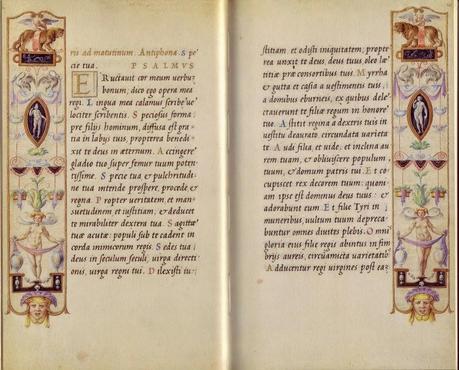 ris ad matutinum. Antiphona. Spe
cie tua. PSALMVS
ERuctauit cor meum uerbū
bonum, dico ego opera mea
regi. Lingua mea calamus scribæ ue
lociter scribentis. Speciosus forma
præ filijs hominum, diffusa est gra
tia in labijs tuis, propterea benedi
xit te deus in æternum. Accingere
gladio tuo super femur tuum poten
tissime. Specie tua & pulchritudi
ne tua intende prospere, procede &
regna. Propter ueritatem, et man
suetudinem et iustitiam, & deducet
te mirabiliter dextera tua. Sagittæ
tuæ acutæ: populi sub te cadent in
corda inimicorum regis. Sedes tua
deus in sæculum sæculi, uirga directi
onis, uirga regni tui. Dilexisti iu
stitiam, et odisti iniquitatem, propte
rea unxit te deus, deus tuus, oleo læ
titiæ præ consortibus tuis. Myrrha
& gutta et casia a uestimentis tuis
a domibus eburneis, ex quibus dele
ctauerunt te filiæ regum in honore
tuo. Astitit regina a dextris tuis in
uestitu deaurato, circundata varieta
te. Audi filia, et uide, et inclina au
rem tuam, & obliuiscere populum
tuum, & domum patris tui. Et con
cupiscet rex decorem tuum: quoni
am ipse est dominus deus tuus: &
adorabunt eum. Et filiæ Tyri in
muneribus, uultum tuum depreca
buntur omnes diuites plebis. Omnis
gloria eius filiæ regis abintus in fim
brijs aureis, circūamicta uarietatib
Adducentur regi uirgines post eā: